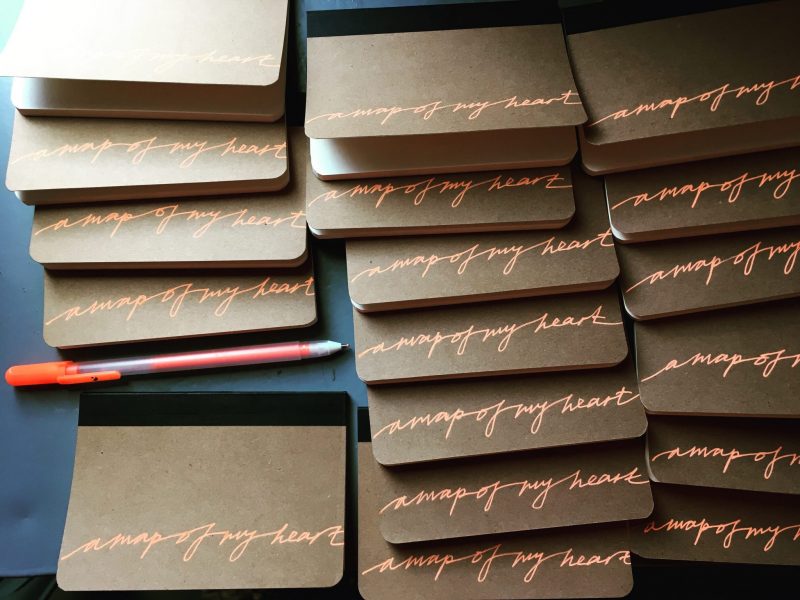 a map of my heart
a map of my heart
a map of my heart
a map of my heart
a map of my heart
a map of my heart
a map of my heart
a map of my heart
a map of my heart
a map of my heart
a map of my heart
a map of my heart
a map of my
a map of my
a map of my
a map of
a map of
a map of my